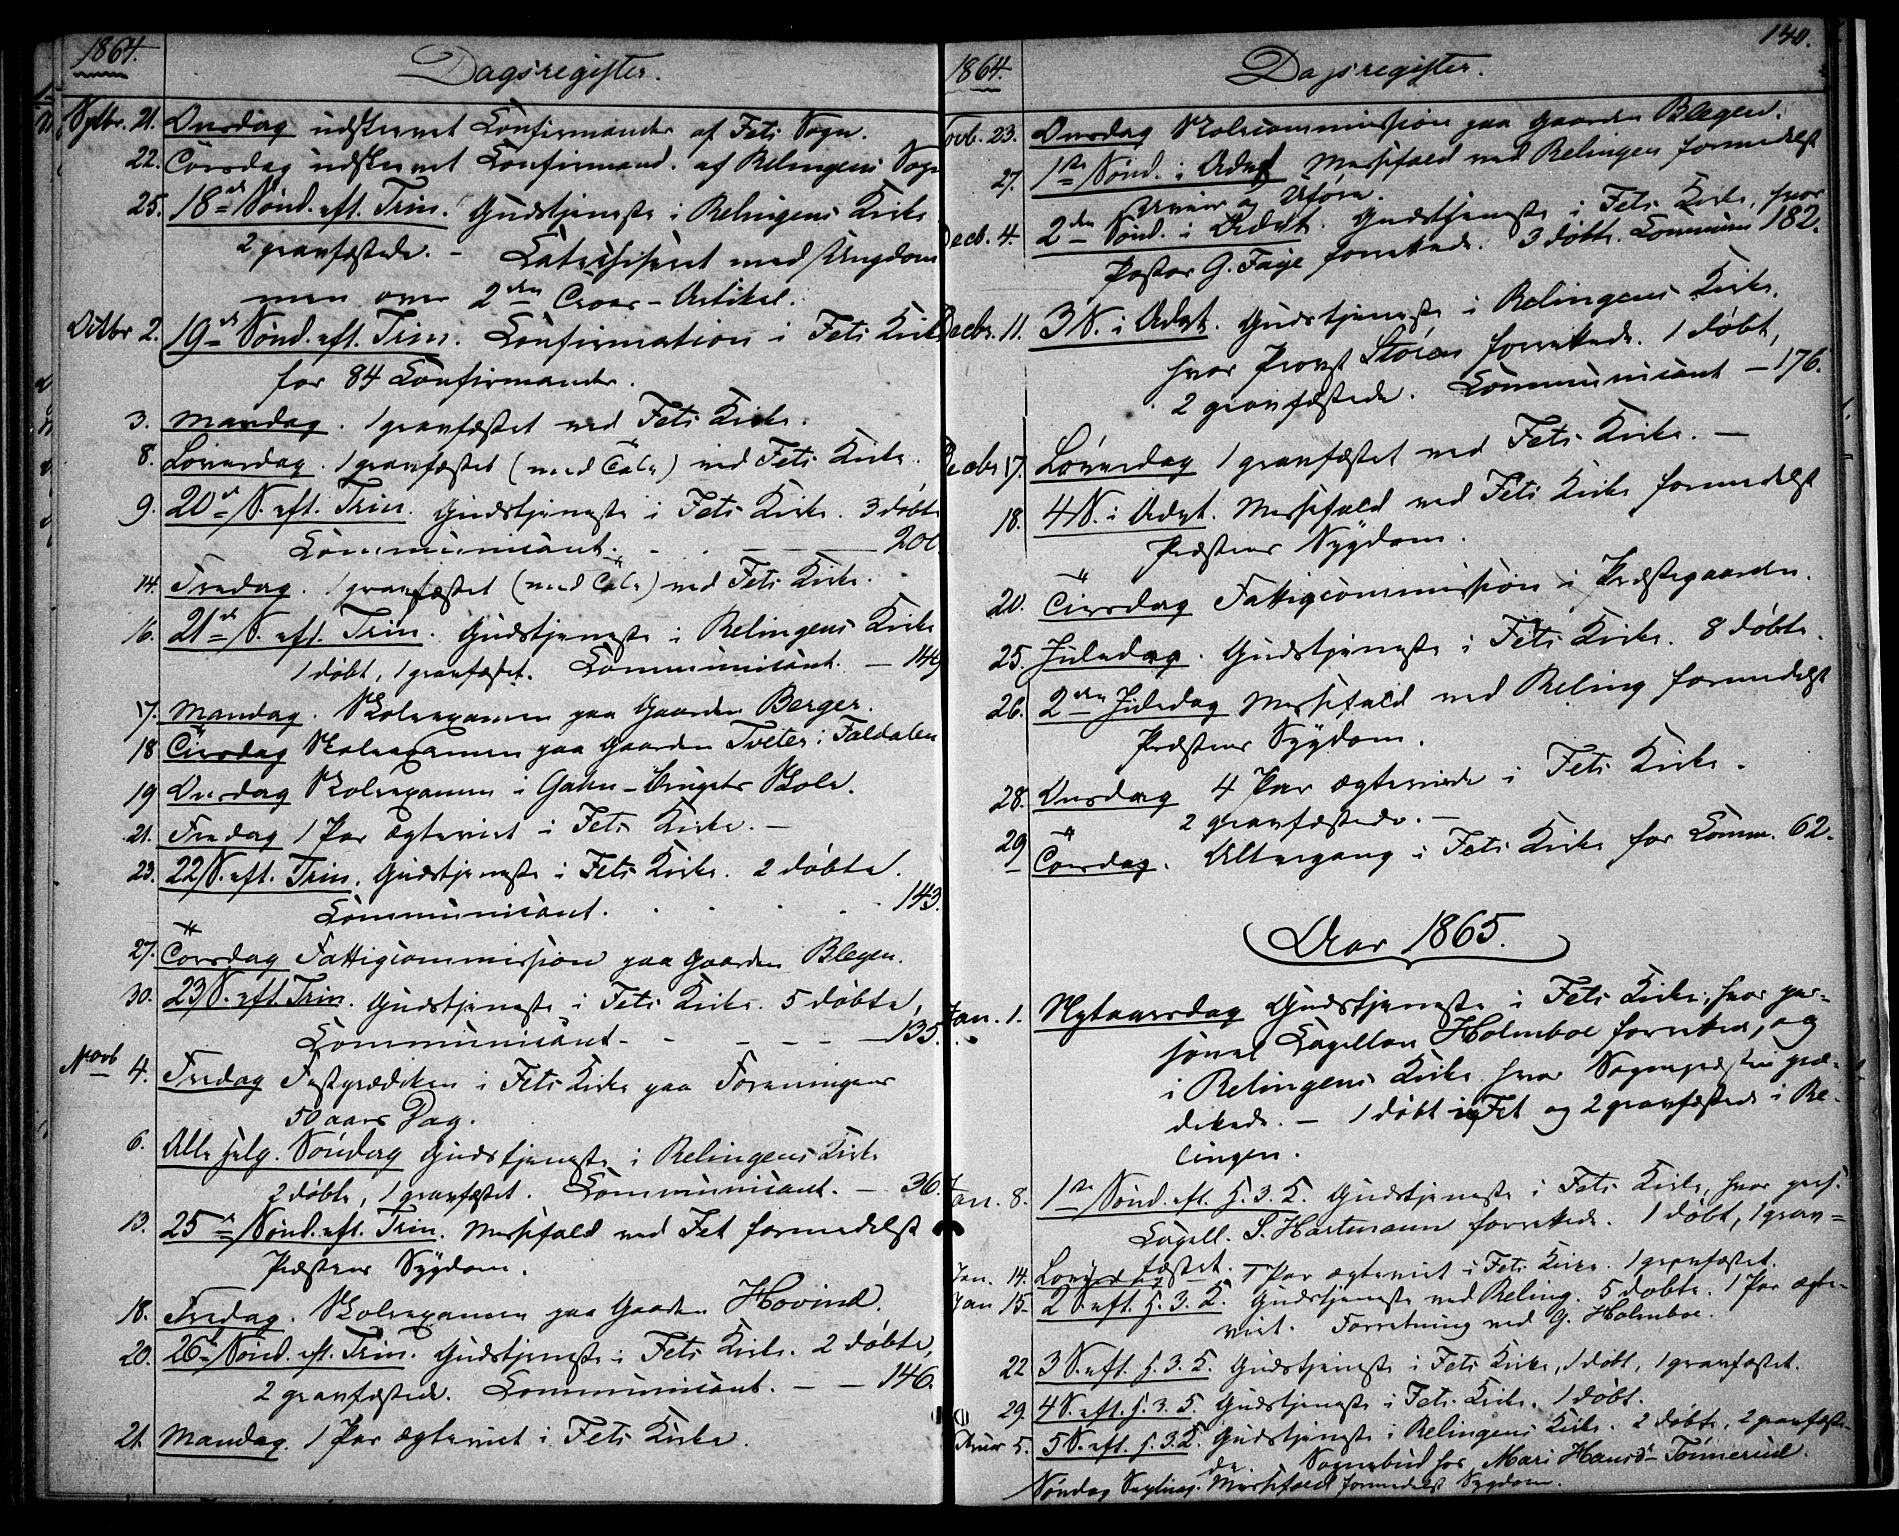 1864.
Dagsregister.
Septbr. 21. Onsdag udskrevet Confirmander af Fets Sogn.
22. Torsdag udskrevet Confirmand. af Relingens Sogn
25. 18de Sønd. eft. Trin. Gudstjeneste i Relingens Kirke
2 gravfæstede. - Catechiseret med Ungdom
men over 2den Troes-Artikel.
Octbr 2. 19de Sønd. eft. Trin. Confirmation i Fets Kirke
for 84 Confirmander.
3. Mandag. 1 gravfæstet ved Fets Kirke.
8. Løverdag. 1 gravfæstet (med Tale) ved Fets Kirke.
9. 20de S. eft. Trin. Gudstjeneste i Fets Kirke. 3 døbte
Communicant. - - 200
14. Fredag. 1 gravfæstet (med Tale) ved Fets Kirke.
16. 21de S. eft. Trin. Gudstjeneste i Relingens Kirke
1 døbt, 1 gravfæstet. Communicant. - 149
17. Mandag. Skoleexamen paa Gaarden Berger.
18 Tirsdag Skoleexamen paa Gaarden Tveter i Faldalen
19 Onsdag Skoleexamen i Gahn-Brugets Skole.
21. Fredag 1 Par ægteviet i Fets Kirke. -
23. 22 S. eft. Trin. Gudstjeneste i Fets Kirke. 2 døbte.
Communicant. . . . . 143.
27. Torsdag Fattigcommission paa Gaarden Blegen.
30. 23 S. eft Trin. Gudstjeneste i Fets Kirke. 5 døbte,
Communicant - - - - 135.
Novb 4. Fredag Festprædiken i Fets Kirke paa Foreningens
50 aars Dag.
6. Alle Helg. Søndag Gudstjeneste i Relingens Kirke
2 døbte, 1 gravfæstet. Communicant. - 36.
13. 25de Sønd. eft. Trin. Messefald ved Fet formedelst
Præstens Sygdom.
18. Fredag. Skoleexamen paa Gaarden Hovind.
20. 26de Sønd. eft. Trin. Gudstjeneste i Fets Kirke. 2 døbte,
2 gravfæstede. Communicant. - - 146.
21. Mandag. 1 Par ægteviet i Fets Kirke.
140.
1864.
Dagsregister.
Novb. 23. Onsdag Skolecommission paa Gaarden Blegen.
27. 1ste Sønd. i Advt Messefald ved Relingen formedelst
Uveir og Uføre.
Decb. 4. 2den Sønd. i Advt. Gudstjeneste i Fets Kirke, hvor
Pastor G. Faye forrettede. 3 døbte. Commun 182.
Decbr. 11. 3 S. i Advt. Gudstjeneste i Relingens Kirke,
hvor Provst Støren forrettede. 1 døbt,
2 gravfæstede. Communicant - 176.
Decbr 17. Løverdag 1 gravfæstet ved Fets Kirke. -
18. 4 S. i Advt. Messefald ved Fets Kirke formedelst
Præstens Sygdom.
20. Tirsdag Fattigcommission i Præstegaarden.
25. Juledag. Gudstjeneste i Fets Kirke. 8 døbte.
26. 2den Juledag Messefald ved Reling formedelst
Præstens Sygdom.
28. Onsdag 4 Par ægteviede i Fets Kirke.
2 gravfæstede. -
29 Torsdag. Altergang i Fets Kirke for Comm. 62.
Aar 1865.
Jan. 1. Nytaarsdag Gudstjeneste i Fets Kirke, hvor per-
sonel Capellan Holmboe forrettede, og
i Relingens Kirke hvor Sognepræsten præ-
dikede. - 1 døbt i Fet og 2 gravfæstede i Re-
lingen.
Jan. 8. 1ste Sønd. eft. H. 3. K. Gudstjeneste i Fets Kirke, hvor pers.
Capell. S. Hartmann forrettede. 1 døbt, 1 grav-
fæstet.
Jan. 14. Løverdag 1 Par ægteviet i Fets Kirke. 1 gravfæstet.
Jan 15. 2 S. eft. H. 3. K. Gudstjeneste ved Reling. 5 døbte. 1 Par ægte-
viet. Forretning ved G. Holmboe.
22 3 S. eft. H. 3. K. Gudstjeneste i Fets Kirke, 1 døbt, 1 gravfæstet.
29. 4 S. eft. H. 3. K. Gudstjeneste i Fets Kirke. 1 døbt.
Februar 5. 5 S. eft. H. 3. K. Gudstjeneste i Relingens Kirke. 2 døbte, 2 gravfæste-
de. Sognebud hos Mari Hansd. Tønnerud.
Søndag Septuag. Messefald formedelst Sygdom.